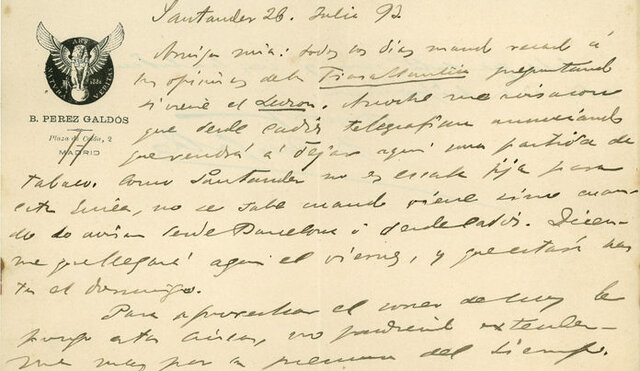 Santander 28. Julio 92
ARS
NATURA
VERITAS
B. PEREZ GALDÓS
Plaza de Colón, 2
MADRID
Amiga mia: todos los dias mando recado á
las oficinas de la Trasatlantica preguntando
si viene el Luzon. Anoche me avisaron
que desde Cadiz telegrafian anunciando
que vendrá á dejar aqui una partida de
tabaco. Como Santander no es escala fija para
esta linea, no se sabe cuando viene sino cuan-
do lo avisan desde Barcelona ó desde Cadiz. Dicen-
me que llegará aqui el viernes, y que estará has-
ta el domingo.
Para aprovechar el correo de hoy le
pongo estas lineas, no pudiendo extender-
me mas por la premura del tiempo.